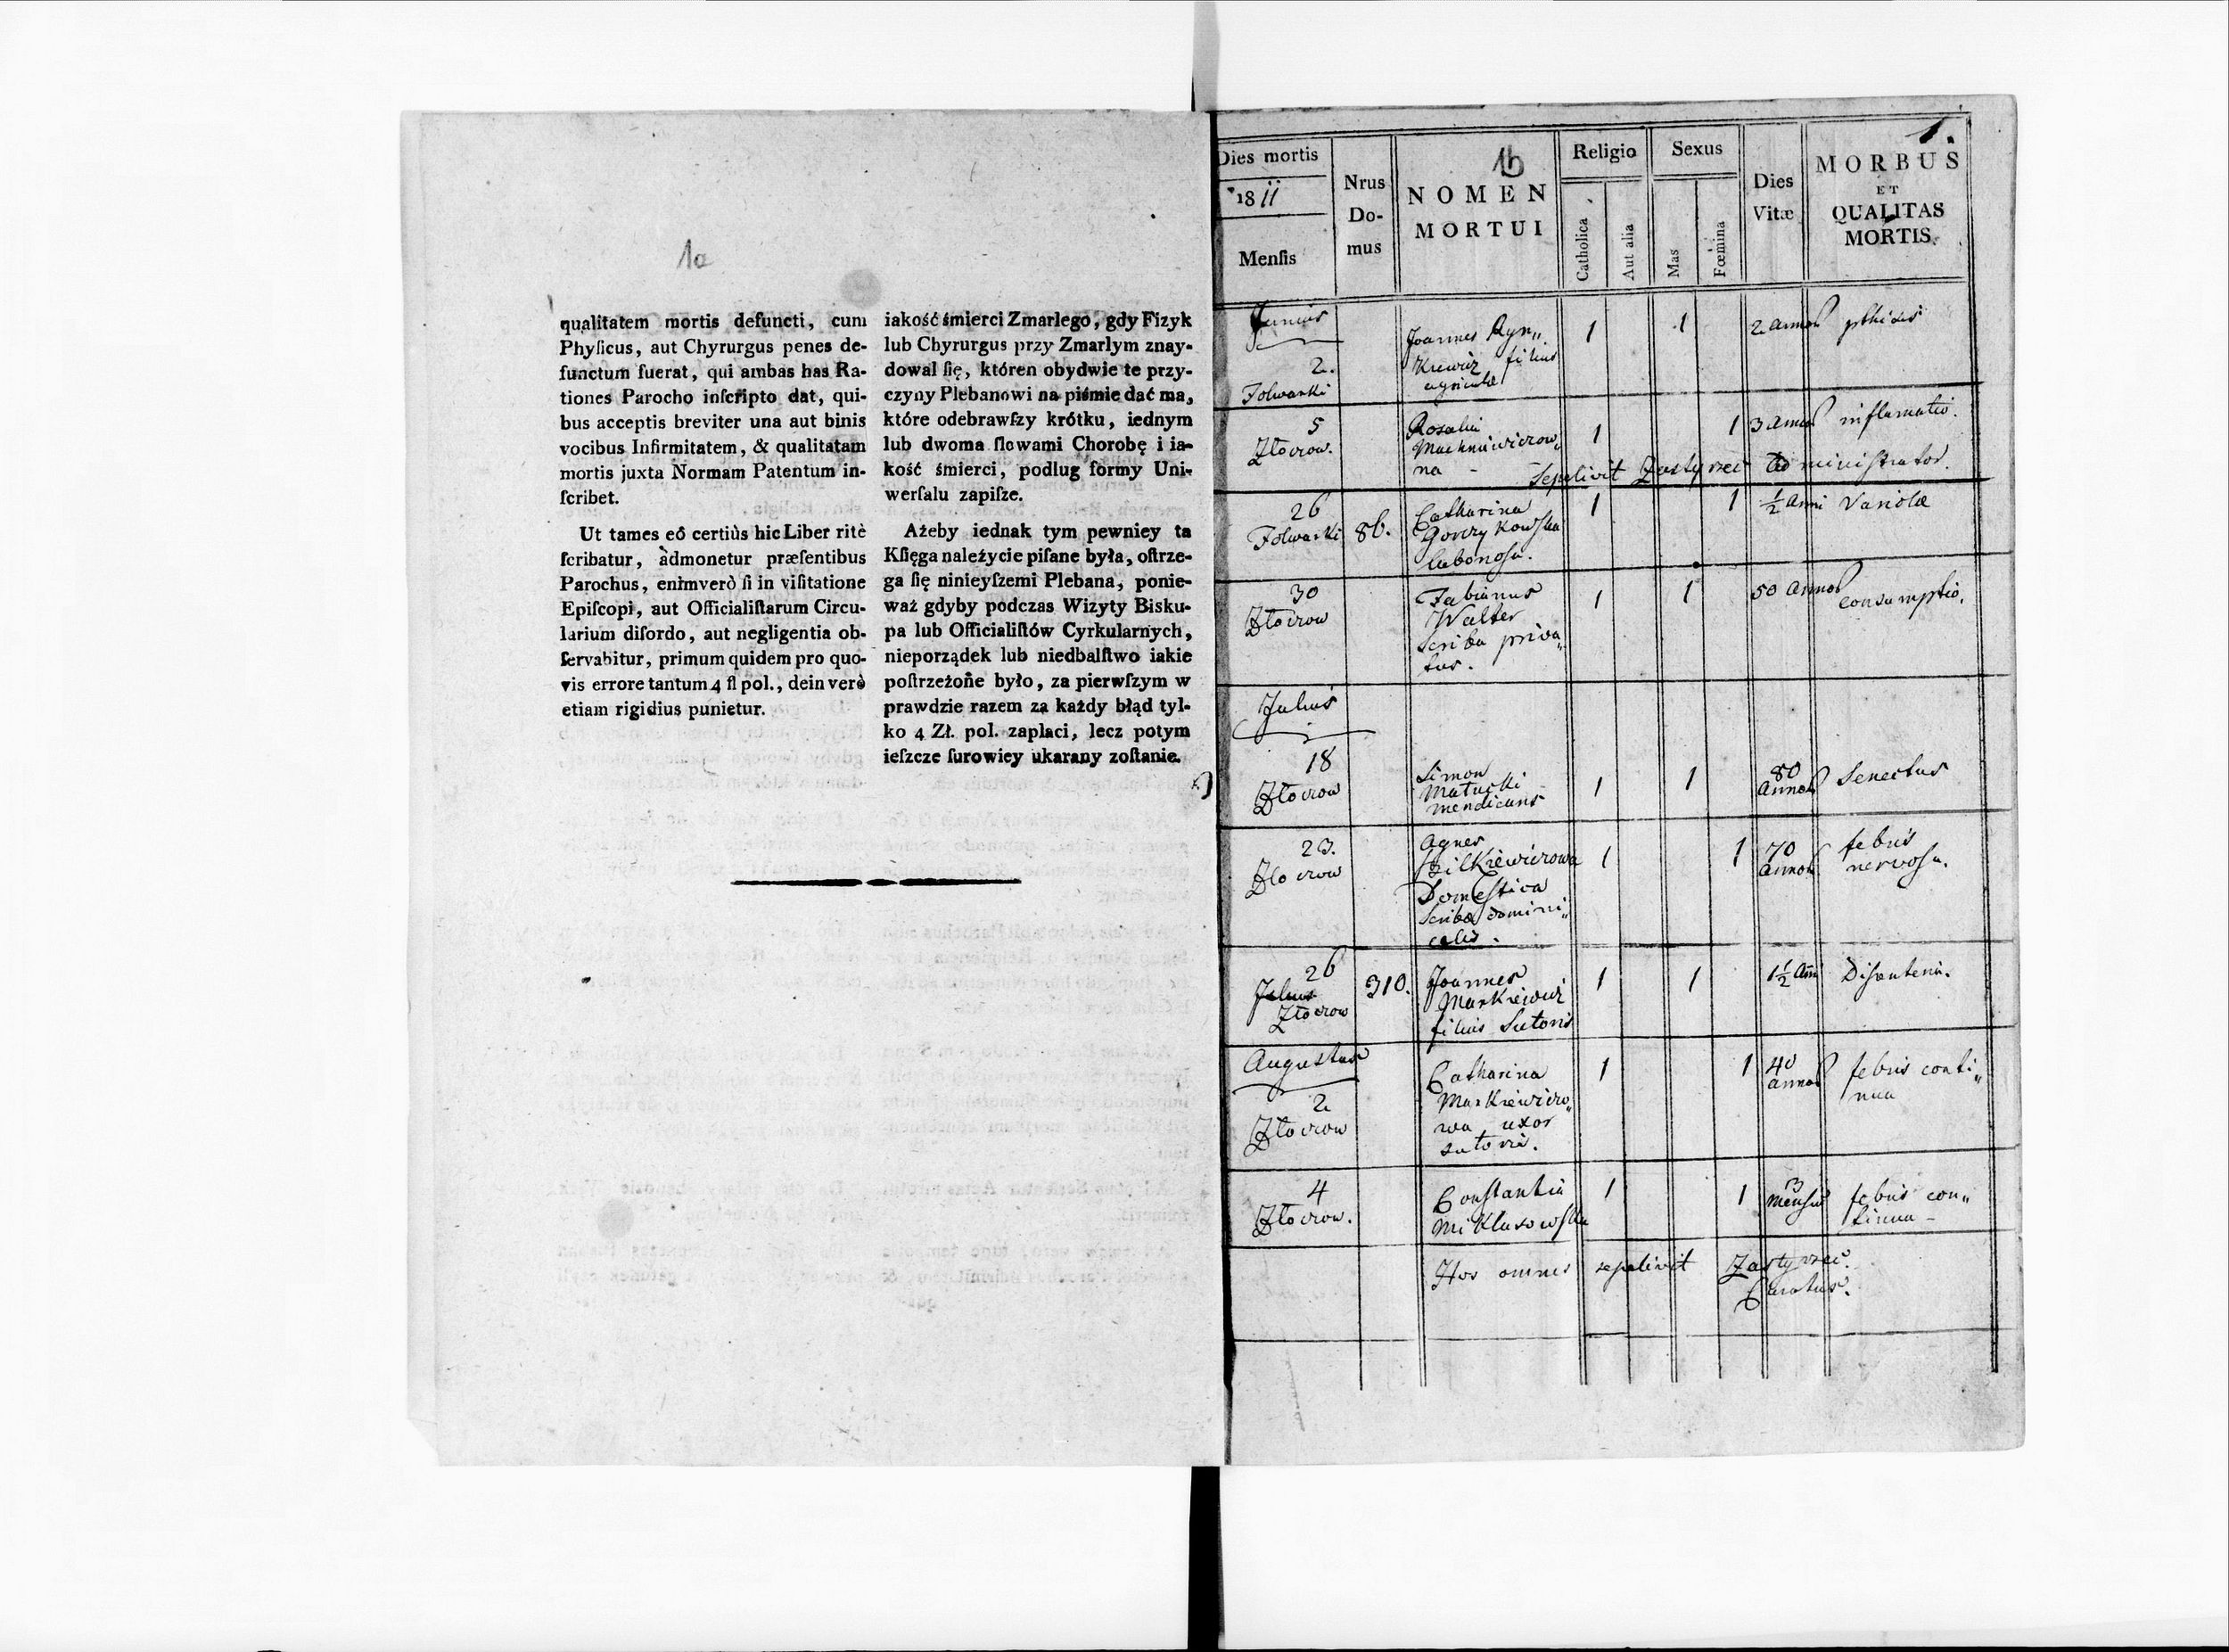 1a
qualitatem mortis defuncti, cum
Phyſicus, aut Chyrurgus penes de-
functum fuerat, qui ambas has Ra-
tiones Parocho inſcripto dat, qui-
bus acceptis breviter una aut binis
vocibus Infirmitatem, & qualitatam
mortis juxta Normam Patentum in-
ſcribet.
Ut tames eô certiùs hic Liber ritè
ſcribatur, àdmonetur præſentibus
Parochus, enimverò ſi in viſitatione
Epiſcopi, aut Officialiſtarum Circu-
larium diſordo, aut negligentia ob-
ſervabitur, primum quidem pro quo-
vis errore tantum 4 fl pol., dein verè
etiam rigidius punietur.
iakość śmierci Zmarlego, gdy Fizyk
lub Chyrurgus przy Zmarlym znay-
dowal ſię, któren obydwie te przy-
czyny Plebanowi na piśmie dać ma,
które odebrawſzy krótku, iednym
lub dwoma ſlowami Chorobę i ia-
kość śmierci, podlug formy Uni-
werſalu zapiſze.
Ażeby iednak tym pewniey ta
Kſięga należycie piſane była, oſtrze-
ga ſię ninieyſzemi Plebana, ponie-
waż gdyby podczas Wizyty Bisku-
pa lub Officialiſtów Cyrkularnych,
nieporządek lub niedbalſtwo iakie
poſtrzeżone było, za pierwſzym w
prawdzie razem za każdy błąd tyl-
ko 4 Zł. pol. zaplaci, lecz potym
ieſzcze ſurowiey ukarany zoſtanie.
1.
1b
Dies mortis
1811
Menſis
Nrus
Do-
mus
NOMEN
MORTUI
Religio
Catholica
Aut alia
Sexus
Mas
Fœmina
Dies
Vitæ
MORBUS
ET
QUALITAS
MORTIS.
Junius
2.
Folwarki
Joannes Ryn„
Kiewicz filius
agricolae
1
1
2 annos
pthisis
5
Złoczow.
Rosalia
Machniewiczow
na -
1
1
3 annos
inflamatio.
Sepelivit Zastyrzec Administrator.
26
Folwarki
86.
Catharina
Gorczykowska
labonosa.
1
1
½ anni
Variolae
30
Złoczow
Fabianus
Walter
Scriba priva„
tus.
1
1
50 annos
consumptio.
Julius
18
Złoczow
Simon
Matuski
mendicans
1
1
80
annos
Senectus
23.
Złoczow
Agnes
Bilkiewiczowa
Domestica
Scriba domini„
calis.
1
1
70
annos
febris
nervosa.
26
Złoczow
310.
Joannes
Markiewicz
filius Sutoris
1
1
1½ ann
Disenteria.
Augustus
2
Złoczow
Catharina
Markiewiczo„
wa uxor
sutoris.
1
1
40
annos
febris conti„
nua
4
Złoczow.
Constantia
Miklasowska
1
1
3
mensis
febris con„
tinua -
Hos omnes sepelivit Zastyrzec.
Curatus.